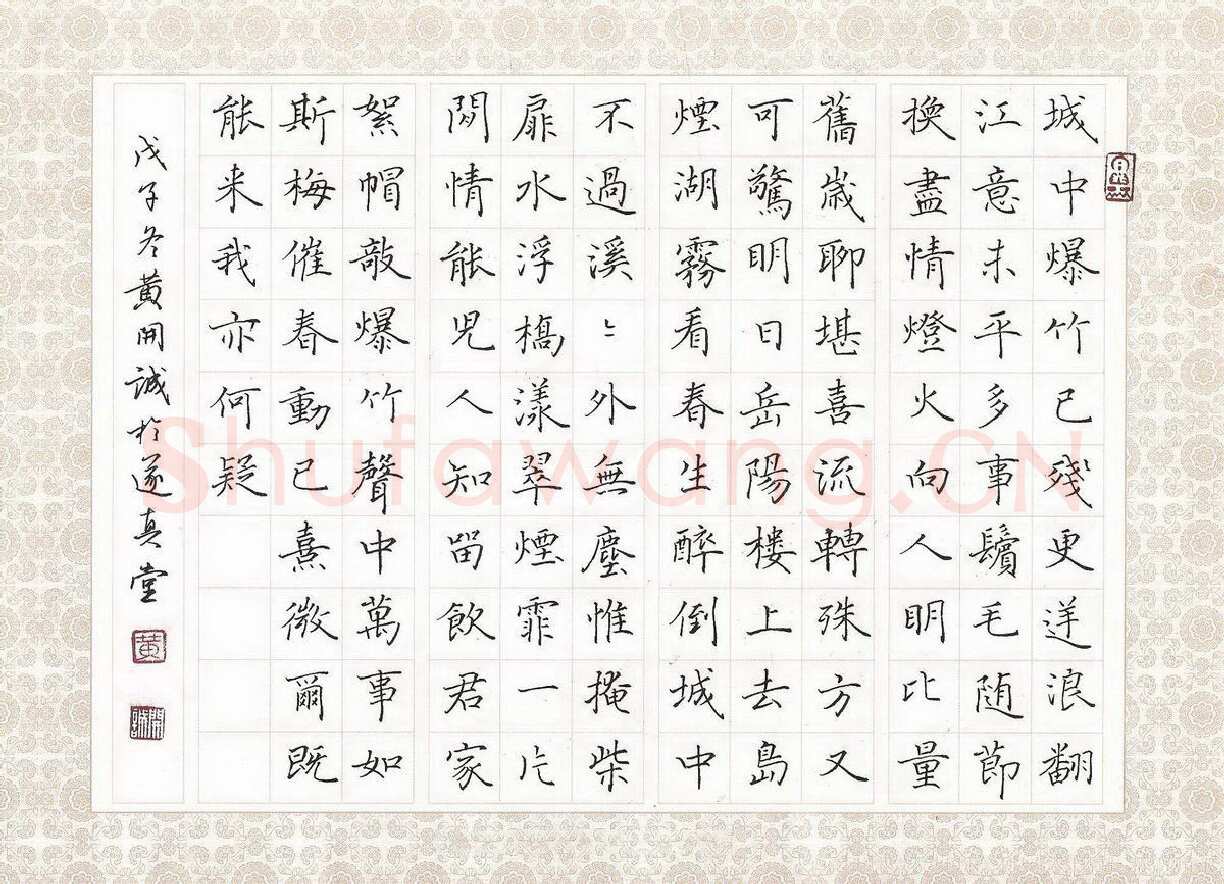 城中爆竹已殘更逆浪翻
江意未平多事鬢毛随節
換盡情燈火向人明比量
舊歲聊堪喜流轉殊方又
可驚明日岳陽樓上去島
煙湖霧看春生醉倒城中
不過溪〻外無塵惟掩柴
扉水浮橋漾翠煙霏一片
閒情能兒人知留飲君家
絮帽敲爆竹聲中萬事如
斯梅催春動已熹微爾既
能来我亦何疑
戊子冬黄開誠於遂真堂
黄
開誠
Shufawang.CN